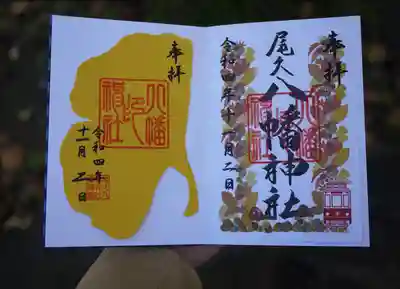 奉拝
尾久八幡神社
令和四年十一月二日
奉拝
八幡神社
令和四年
十一月二日